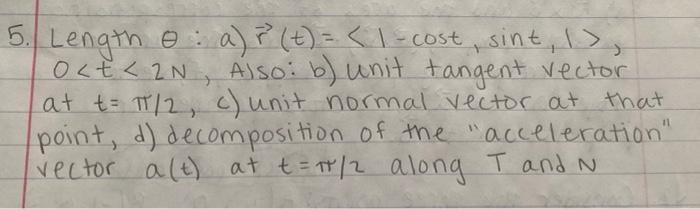 5. Length θ : a) r⃗(t) = < 1 - cost, sint, 1 >,
0 < t < 2N, Also: b) unit tangent vector
at t = π/2, c) unit normal vector at that
point, d) decomposition of the "acceleration"
vector a(t) at t = π/2 along T and N